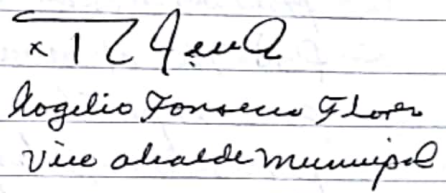 Rogelio Fonseca Flores
Vice alcalde Municipal